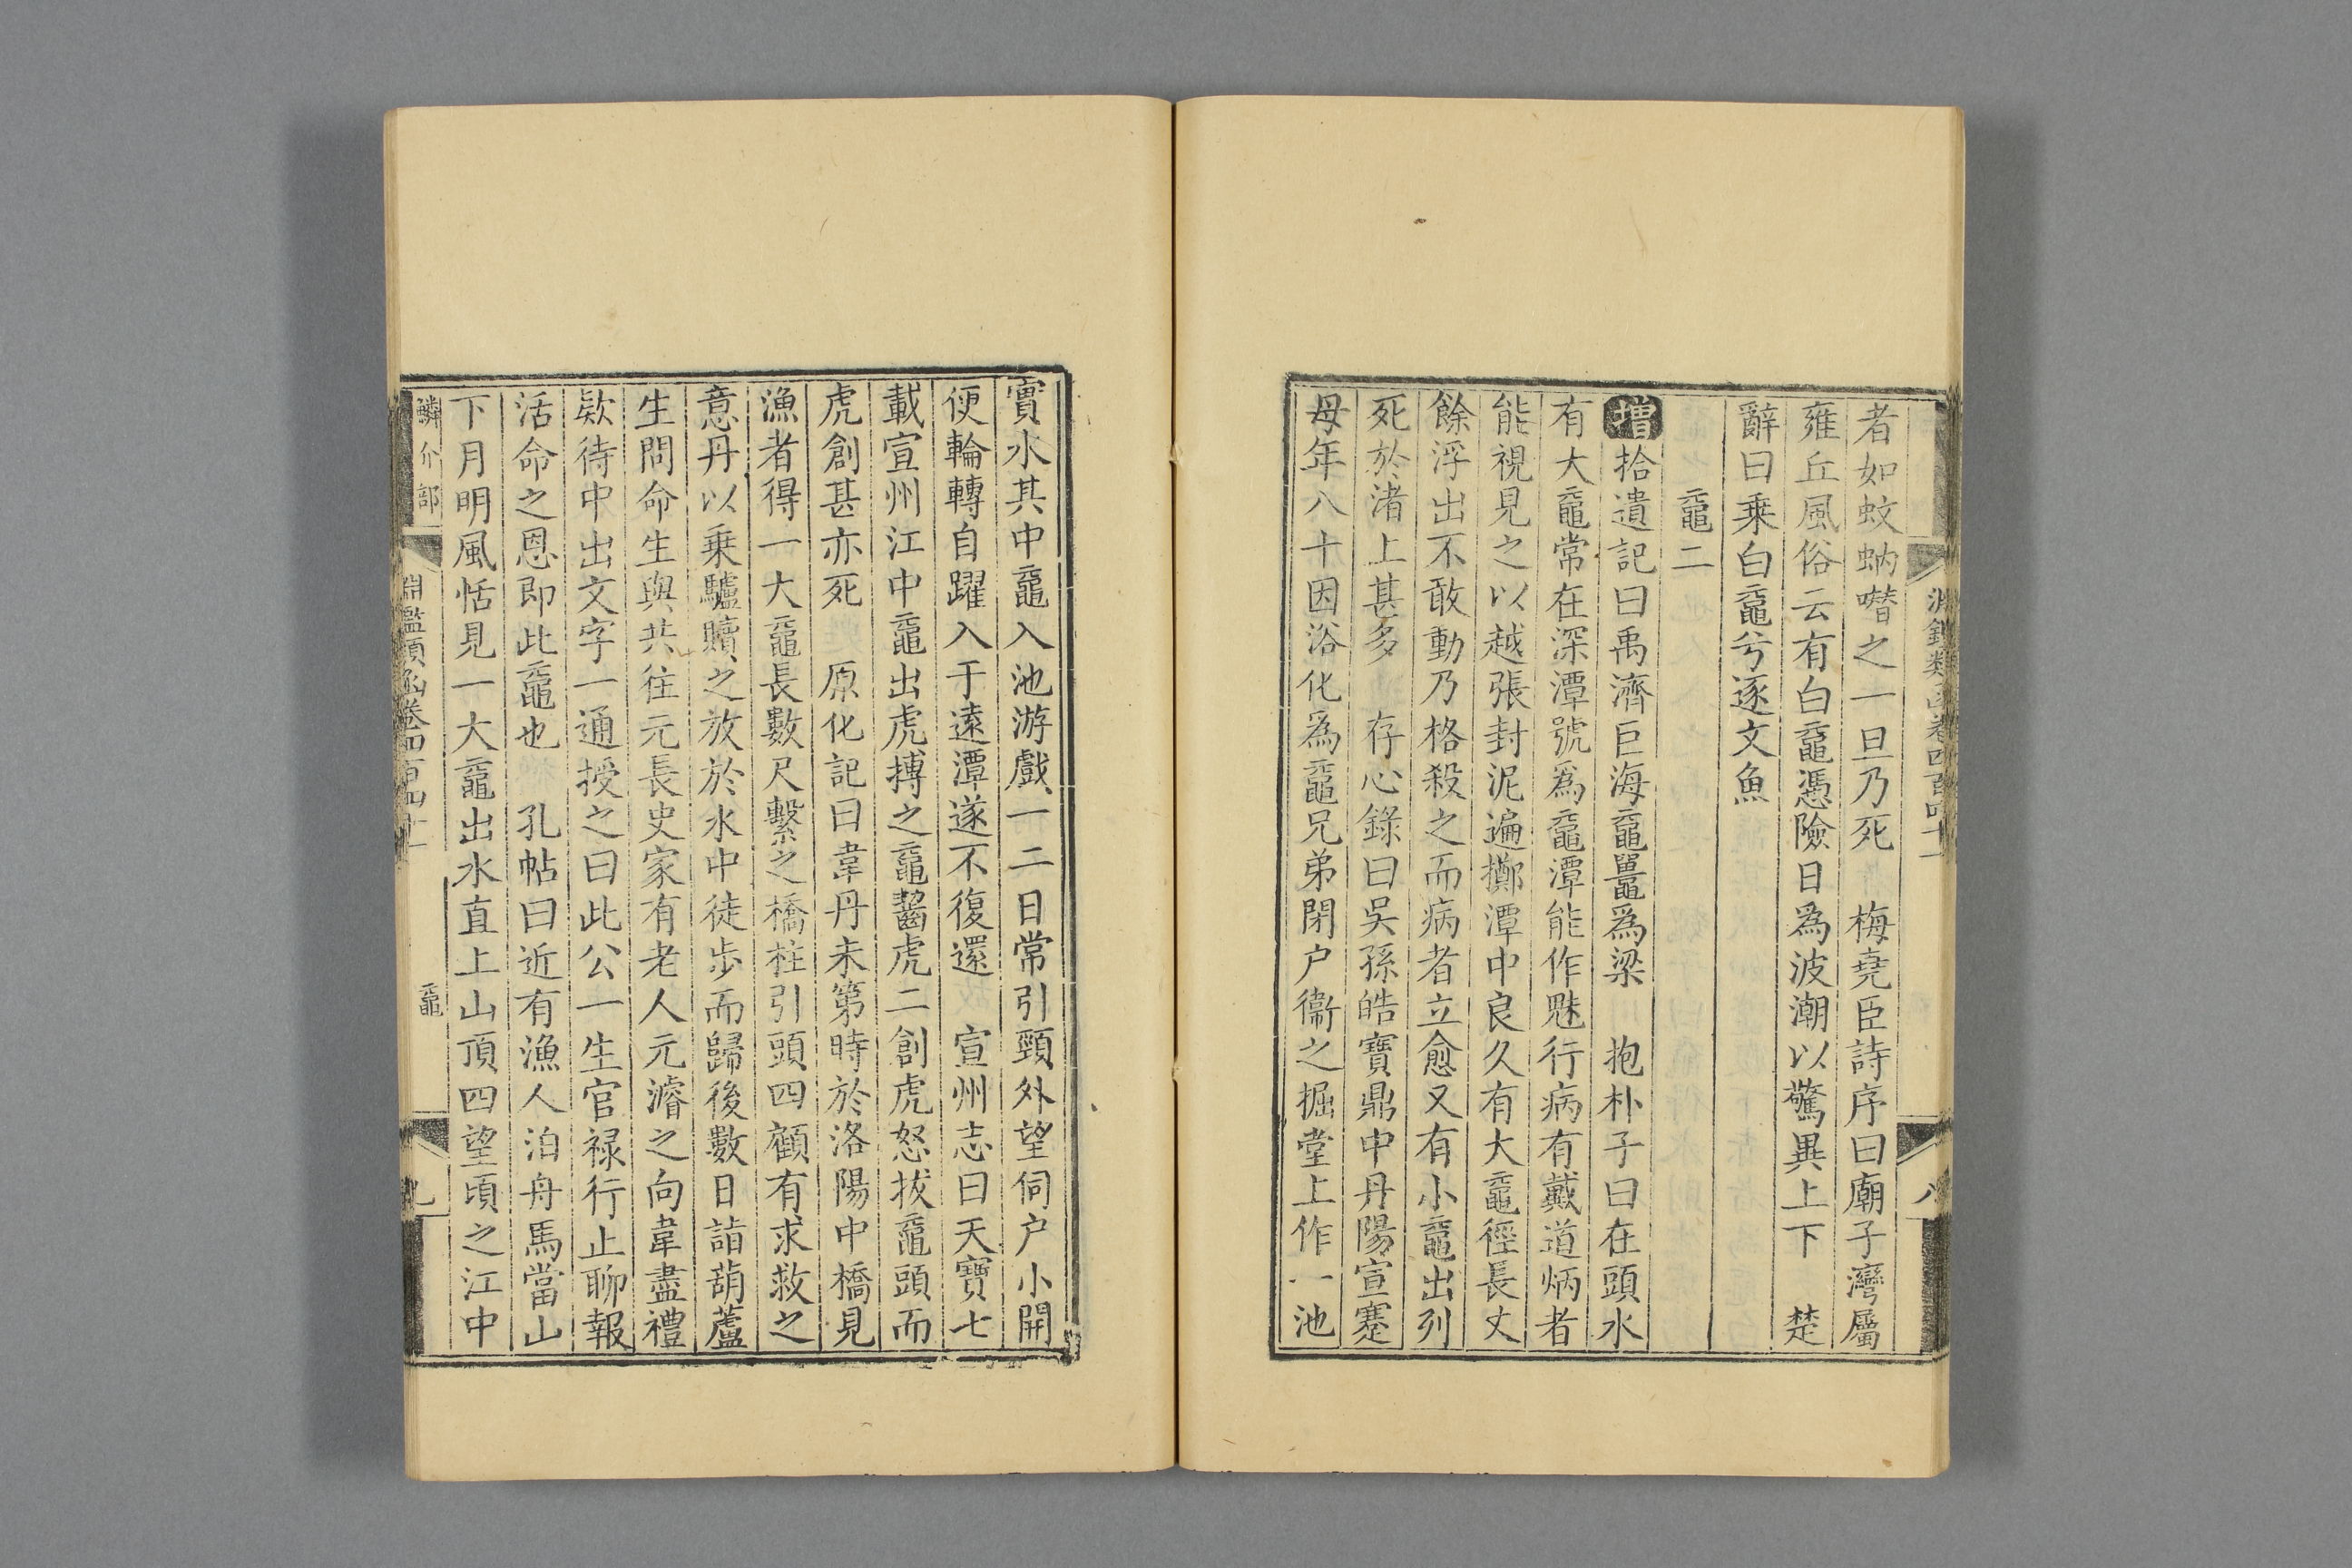 者如蚊蚋噆之一旦乃死　梅堯臣詩序曰廟子灣屬
雍丘風俗云有白黿憑險日為波潮以驚異上下　楚
辭曰乗白黿兮逐文魚
黿二
增拾遺記曰禹濟巨海黿鼉為梁　抱朴子曰在頭水
有大黿常在深潭號為黿潭能作魅行病有戴道炳者
能視見之以越張封泥遍擲潭中良久有大黿徑長丈
餘浮出不敢動乃格殺之而病者立愈又有小黿出列
死於渚上甚多　存心錄曰吳孫皓寶鼎中丹陽宣騫
母年八十因浴化為黿兄弟閉户衞之掘堂上作一池
實水其中黿入池游戲一二日常引頸外望伺户小開
便輪轉自躍入于遠潭遂不復還　宣州志曰天寶七
載宣州江中黿出虎搏之黿齧虎二創虎怒拔黿頭而
虎創甚亦死　原化記曰韋丹未第時於洛陽中橋見
漁者得一大黿長數尺繫之橋柱引頭四顧有求救之
意丹以乗驢贖之放於水中徒步而歸後數日詣葫蘆
生問命生與共往元長史家有老人元濬之向韋盡禮
欵待中出文字一通授之曰此公一生官禄行止聊報
活命之恩即此黿也　孔帖曰近有漁人泊舟馬當山
下月明風恬見一大黿出水直上山頂四望頃之江中
鱗介部　淵鑑類函卷四百四十一　黿　九